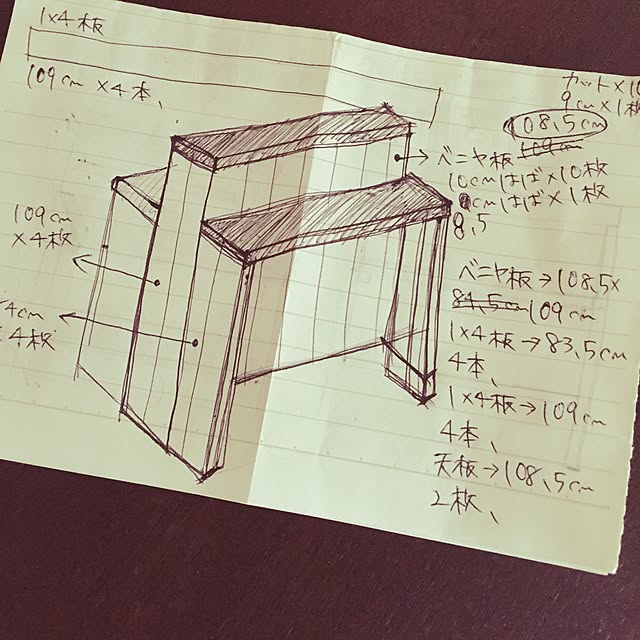 1×4板
109cm ×4本、
109cm
×4枚
4cm
4枚
カット×10
9cm×1枚
108,5cm
109cm
ベニヤ板
10cmはば×10枚
cmはば×1枚
8,5
ベニヤ板→108,5×
84,5cm 109cm
1×4板→83,5cm
4本、
1×4板→109cm
4本、
天板→108,5cm
2枚、